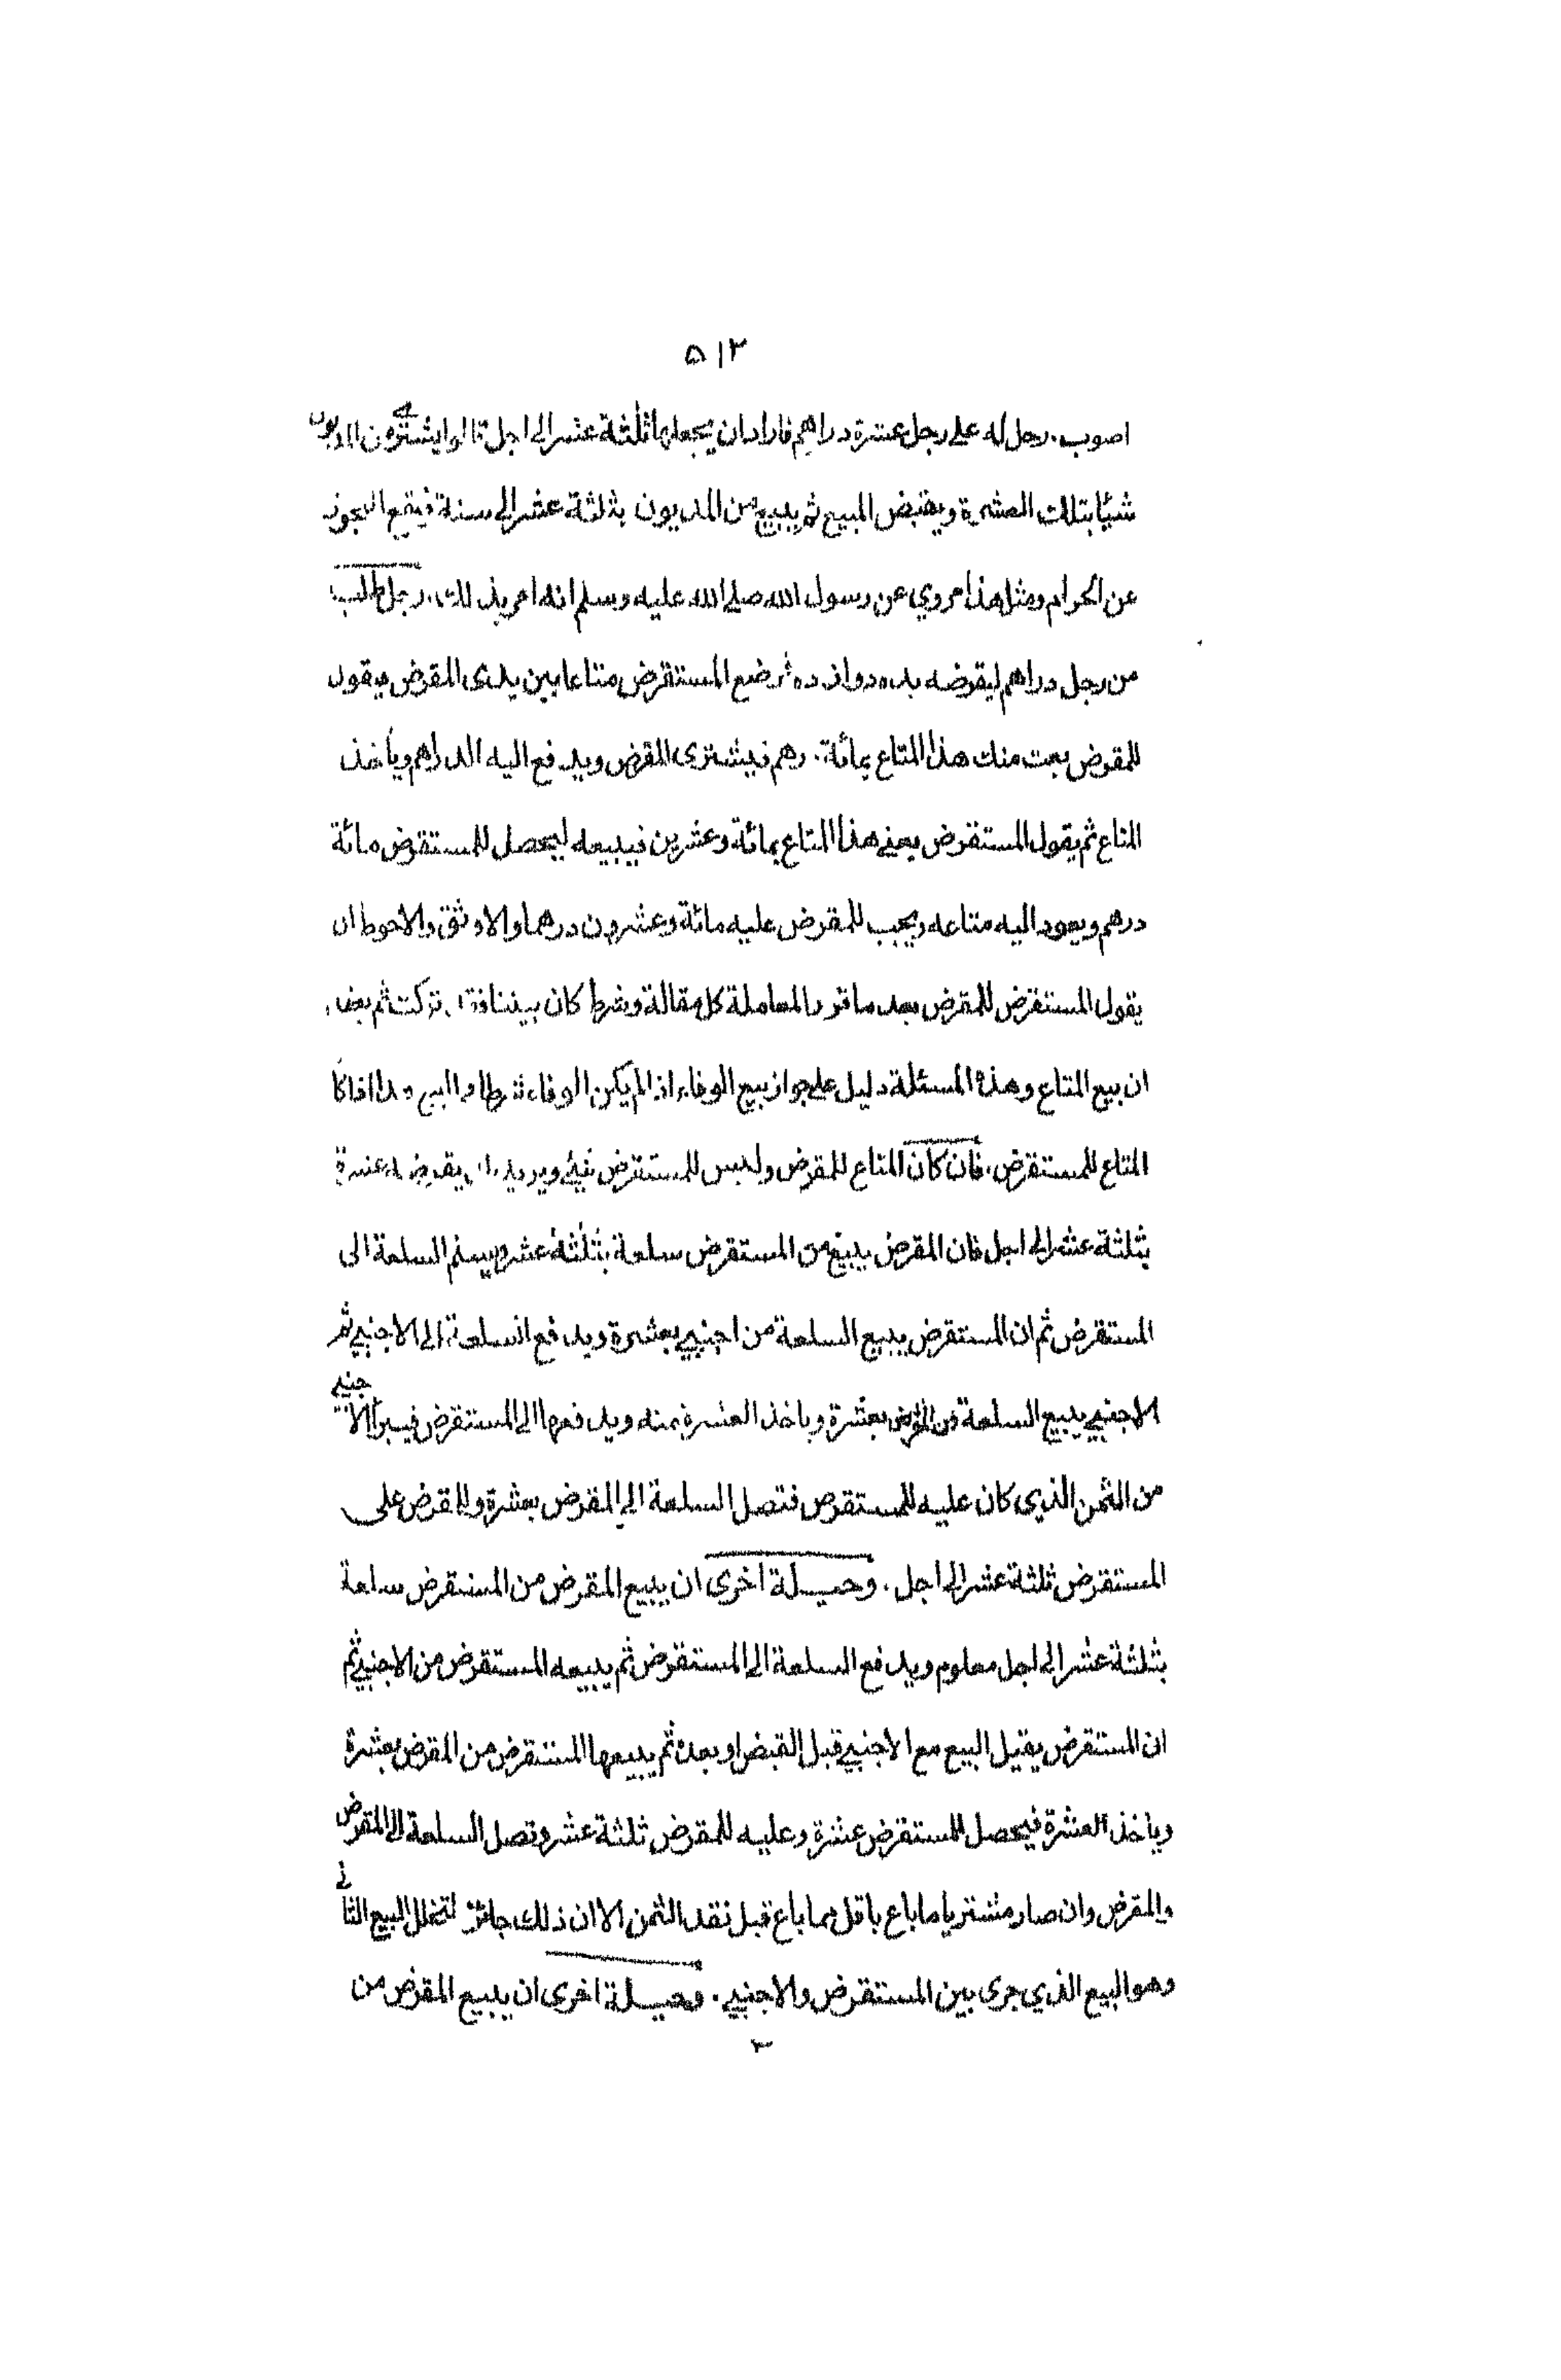 ۵۱۲
اصوب. رجل له على رجل عشرة دراهم فاراد ان يجعلها ثلثة عشر الى اجل قالوا يشترى من المديون
شيئا بتلك العشرة ويقبض المبيع ثم يبيع من المديون بثلثة عشر الى سنة فيقع التجوز
عن الحرام ومثل هذا مروي عن رسول الله صلى الله عليه وسلم انه امر بذلك. رجل طلب
من رجل دراهم ليقرضه بده دوازده ثم يضع المستقرض متاعا بين يدى المقرض ويقول
للمقرض بعت منك هذا المتاع بمائة درهم فيشترى المقرض ويدفع اليه الدراهم ويأخذ
المتاع ثم يقول المستقرض بعني هذا المتاع بمائة وعشرين فيبيعه ليحصل للمستقرض مائة
درهم ويعود اليه متاعه ويجب للمقرض عليه مائة وعشرون درهما والاوثق والاحوط ان
يقول المستقرض للمقرض بعد ما قررا المعاملة كل مقالة وشرط كان بيننا فقد تركت ثم بعد
ان بيع المتاع وهذه المسئلة دليل على جواز بيع الوفاء اذا لم يكن الوفاء شرطا في البيع هذا اذا كان
المتاع للمستقرض. فان كان المتاع للمقرض وليس للمستقرض شيئ ويريد ان يقرضه عشرة
بثلثة عشر الى اجل فان المقرض يبيع من المستقرض سلعة بثلثة عشر ويسلم السلعة الى
المستقرض ثم ان المستقرض يبيع السلعة من اجنبي بعشرة ويدفع السلعة الى الاجنبي ثم
الاجنبي يبيع السلعة من المقرض بعشرة وياخذ العشرة منه ويدفعها الى المستقرض فيبرأ الاجنبي
من الثمن الذي كان عليه للمستقرض فتصل السلعة الى المقرض بعشرة وللمقرض على
المستقرض ثلثة عشر الى اجل. وحيلة اخرى ان يبيع المقرض من المستقرض سلعة
بثلثة عشر الى اجل معلوم ويدفع السلعة الى المستقرض ثم يبيعه المستقرض من الاجنبي ثم
ان المستقرض يقيل البيع مع الاجنبي قبل القبض او بعده ثم يبيعها المستقرض من المقرض بعشرة
وياخذ العشرة فيحصل للمستقرض عشرة وعليه للمقرض ثلثة عشر وتصل السلعة الى المقرض
والمقرض وان صار مشتريا ما باع باقل مما باع قبل نقد الثمن الا ان ذلك جائز لتخلل البيع الثاني
وهو البيع الذي جرى بين المستقرض والاجنبي. وحيلة اخرى ان يبيع المقرض من